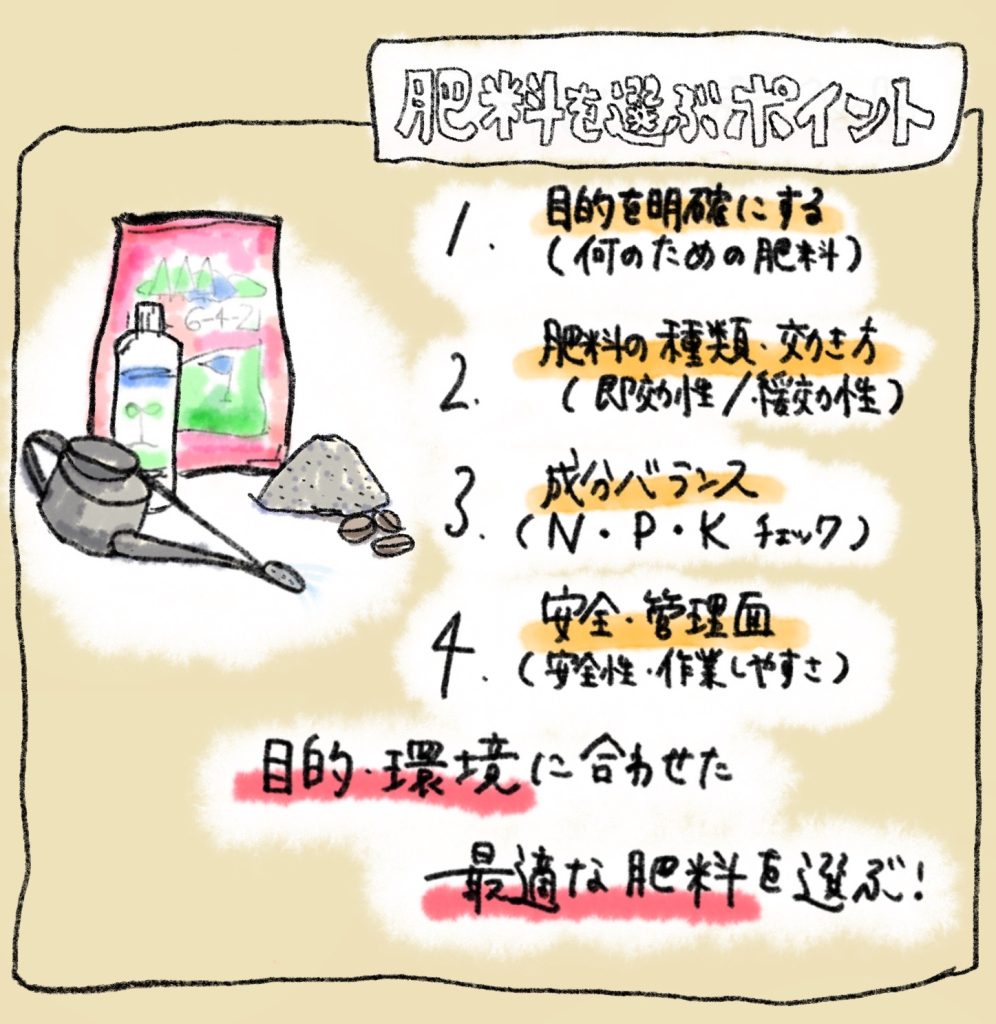 肥料を選ぶポイント
1. 目的を明確にする
(何のための肥料)
2. 肥料の種類・効き方
(即効性/緩効性)
3. 成分バランス
(N・P・Kチェック)
4. 安全・管理面
(安全性・作業しやすさ)
目的・環境に合わせた
最適な肥料を選ぶ!
6-4-2